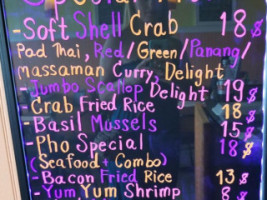 - Soft Shell Crab 18 $
Pad Thai, Red/Green/Panang/
Massaman Curry, Delight
- Jumbo Scallop Delight 19 $
- Crab Fried Rice 18 $
- Basil Mussels 15 $
- Pho Special 18 $
(Seafood + Combo)
- Bacon Fried Rice 13 $
- Yum Yum Shrimp 8 $